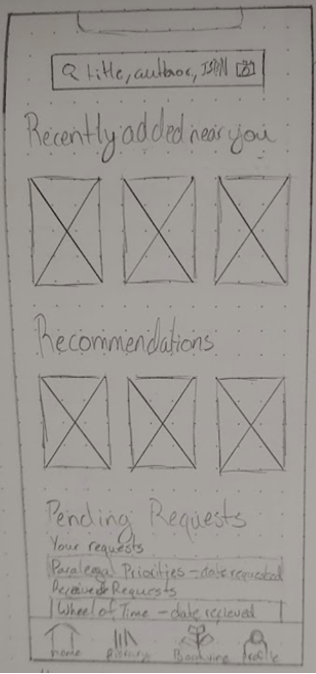 title, author, ISBN
Recently added near you
Recommendations
Pending Requests
Your requests
Paralegal Priorities - date requested
Received Requests
Wheel of Time - date recieved
home Library Bookvine Profile